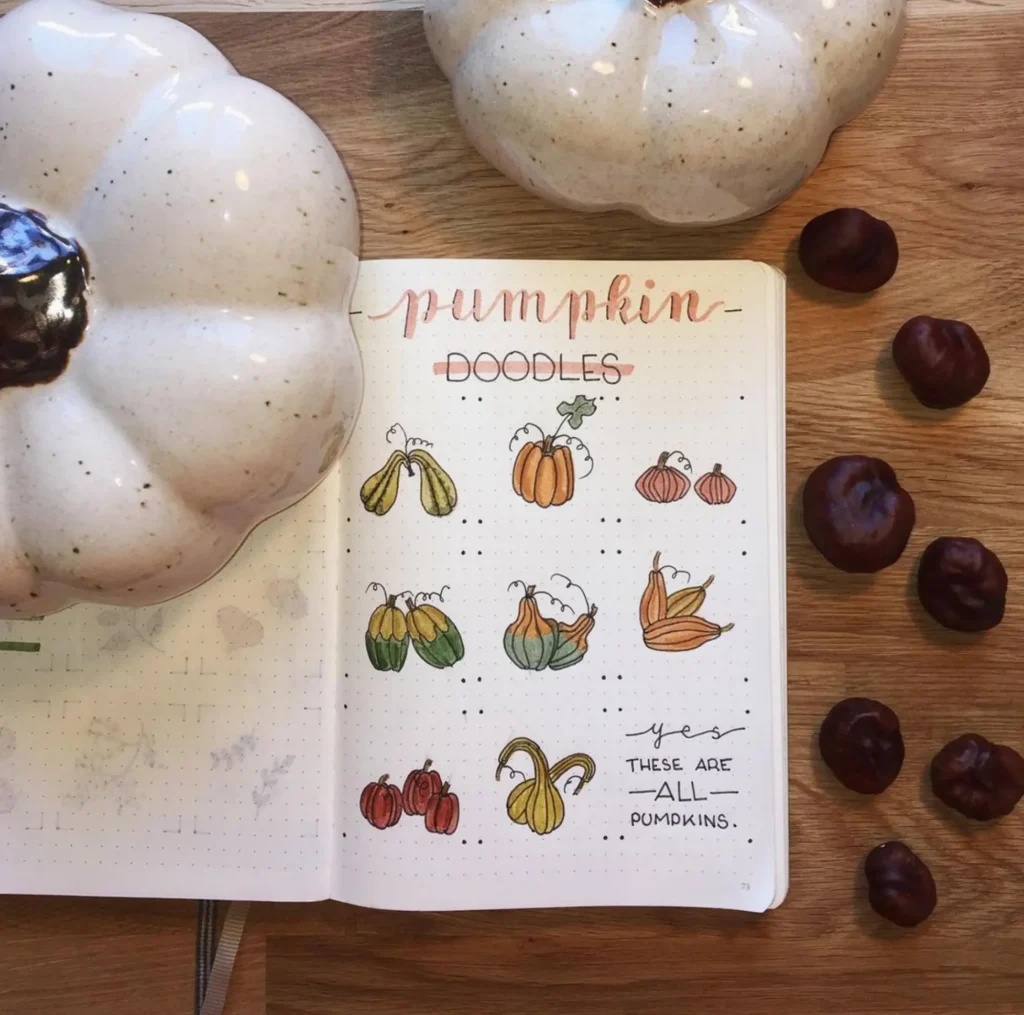 pumpkin
DOODLES
yes
THESE ARE
ALL
PUMPKINS.
73